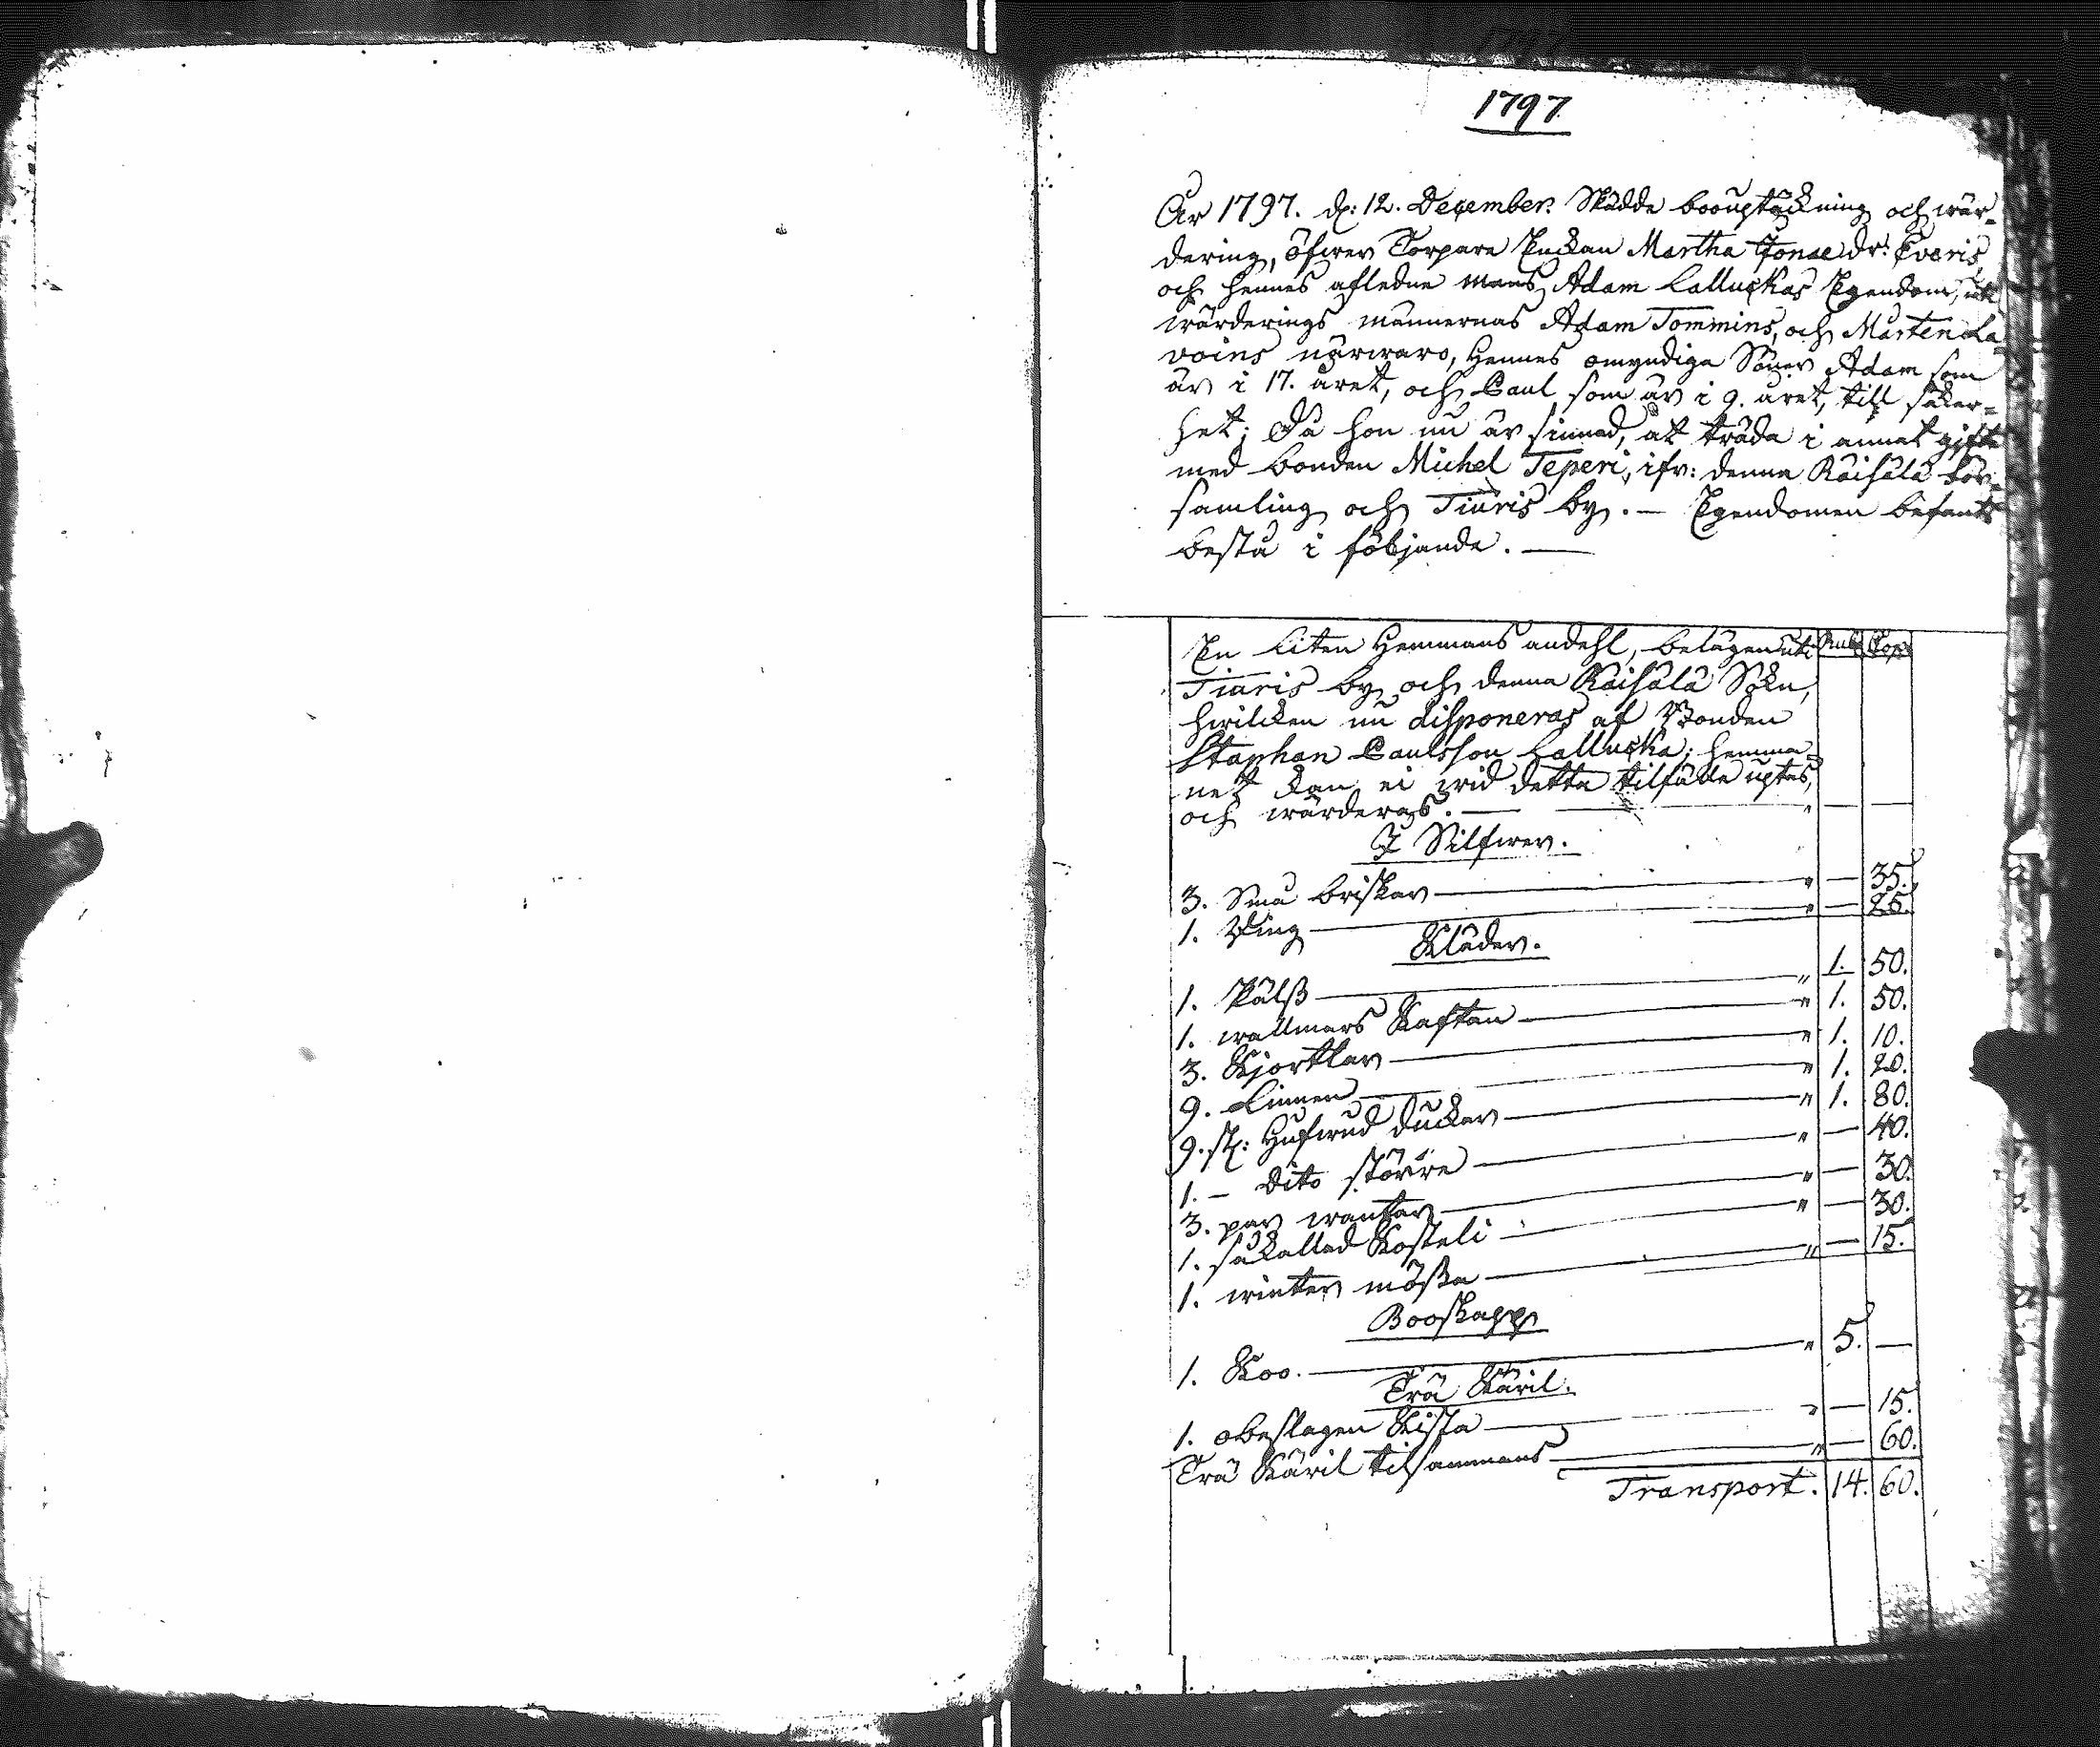 1797
År 1797. d: 12. December. Skedde boouptäckning och wär-
dering, öfwer Torpare Enckan Martha Jonae dr: Äveris
och hennes afledne mans Adam Lalluckas Egendom, uti
wärderings männernas Adam Tommins, och Mårten La-
voins närwaro, Hennes omyndiga Söner Adam som
är i 17. året, och Paul som är i 9. året, till säker-
het; Då hon nu är sinnad, at träda i annat gifte
med bonden Michel Teperi, ifr: denna Räisälä för-
samling och Tiuris by. — Egendomen befants
bestå i följande. —
En liten Hemmans andehl, belägen uti Rub. Cop.
Tiuris by och denna Räisälä Sokn,
hwilcken nu disponeras af Bonden
Staphan Paulsson Lallucka; hemma-
net kan ei wid detta tilfälle uptas,
och wärderas. — " — —
I Silfwer.
3. Små briskar — " — 35.
1. Ring — " — 25.
Kläder.
1. Päls — " 1. 50.
1. wallmars Kaftan — " 1. 50.
3. Kjortlar — " 1. 10.
9. Linnen — " 1. 20.
9. st: Hufwud duckar — " 1. 80.
1. — dito större — " — 40.
3. par wantar — " — 30.
1. så kallad Kosteli — " — 30.
1. winter mössa — " — 15.
Booskapp
1. Koo. — " 5. —
Trä Käril.
1. obeslagen Kista — " — 15.
Trä Käril tilsammans — " — 60.
Transport. 14. 60.